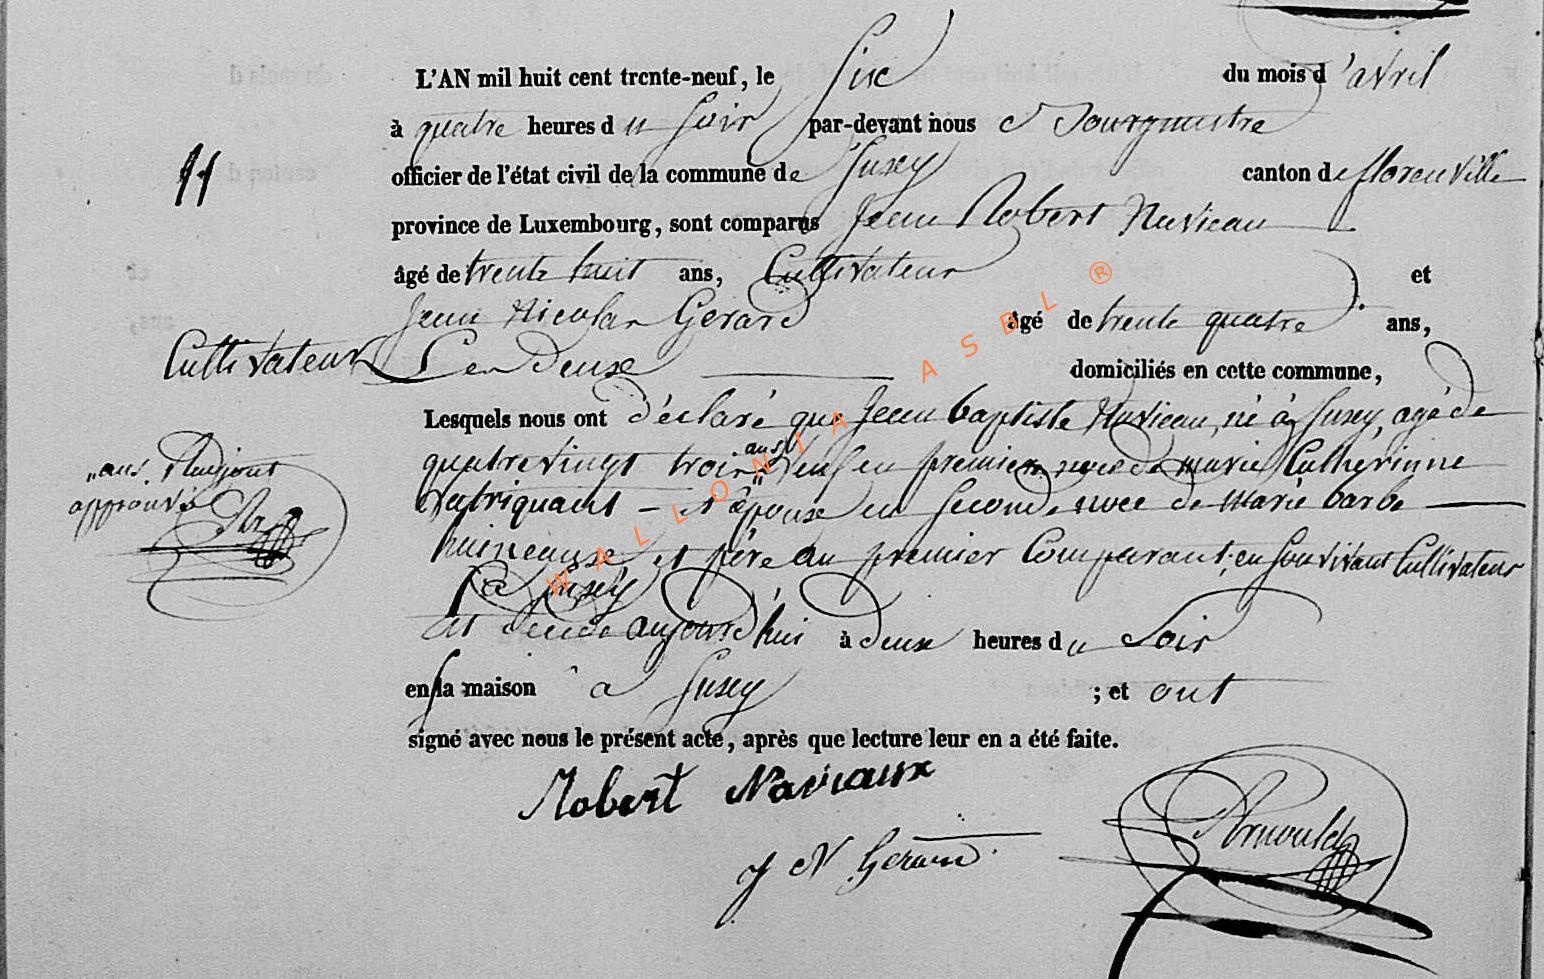 L'AN mil huit cent trente-neuf, le Six du mois d'avril
à quatre heures du Soir par-devant nous Bourgmestre
11
officier de l'état civil de la commune de Suxey canton de florenville
province de Luxembourg, sont comparus Jean Robert Navieau
âgé de trente huit ans, Cultivateur et
Jean Nicolas Gerard âgé de trente quatre ans,
Cultivateur Les Deux domiciliés en cette commune,
Lesquels nous ont déclaré que Jean baptiste Navieau, né à Suxey, agé de
quatre vingt trois ans veuf en premier noce de marie Catherinne
ans
approuvé
et épouse en Seconde noce de Marie barbe
et père au premier Comparant, en Son vivant Cultivateur
à Suxey
est décédé aujourd'hui à deux heures du Soir
en sa maison à Suxey ; et ont
signé avec nous le présent acte, après que lecture leur en a été faite.
Robert Naviaux
J N Gerard
Arnould
WALLONIA ASBL ®